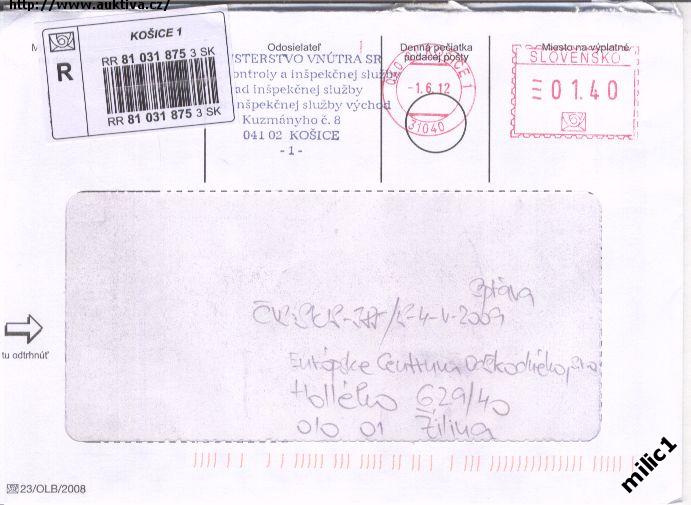 http://www.auktiva.cz/
KOŠICE 1
R
RR 81 031 875 3 SK
RR 81 031 875 3 SK
M
Odosielateľ
STERSTVO VNÚTRA SR
ontroly a inšpekčnej služby
ad inšpekčnej služby
inšpekčnej služby východ
Kuzmányho č. 8
041 02 KOŠICE
- 1 -
Denná pečiatka
podacej pošty
-1.6.12
Miesto na výplatné
SLOVENSKO
01.40
tu odtrhnúť
Európske Centrum
Hollého 629/40
010 01 Žilina
23/OLB/2008
milic1